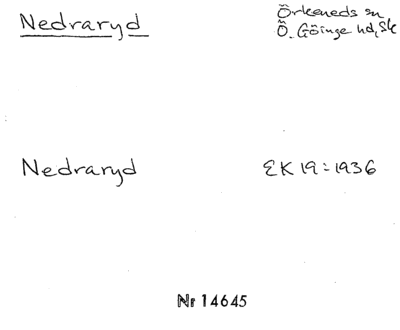 Nedraryd
Örkeneds sn
Ö. Göinge hd, Sk
Nedraryd
EK 19:1936
Nr 14645